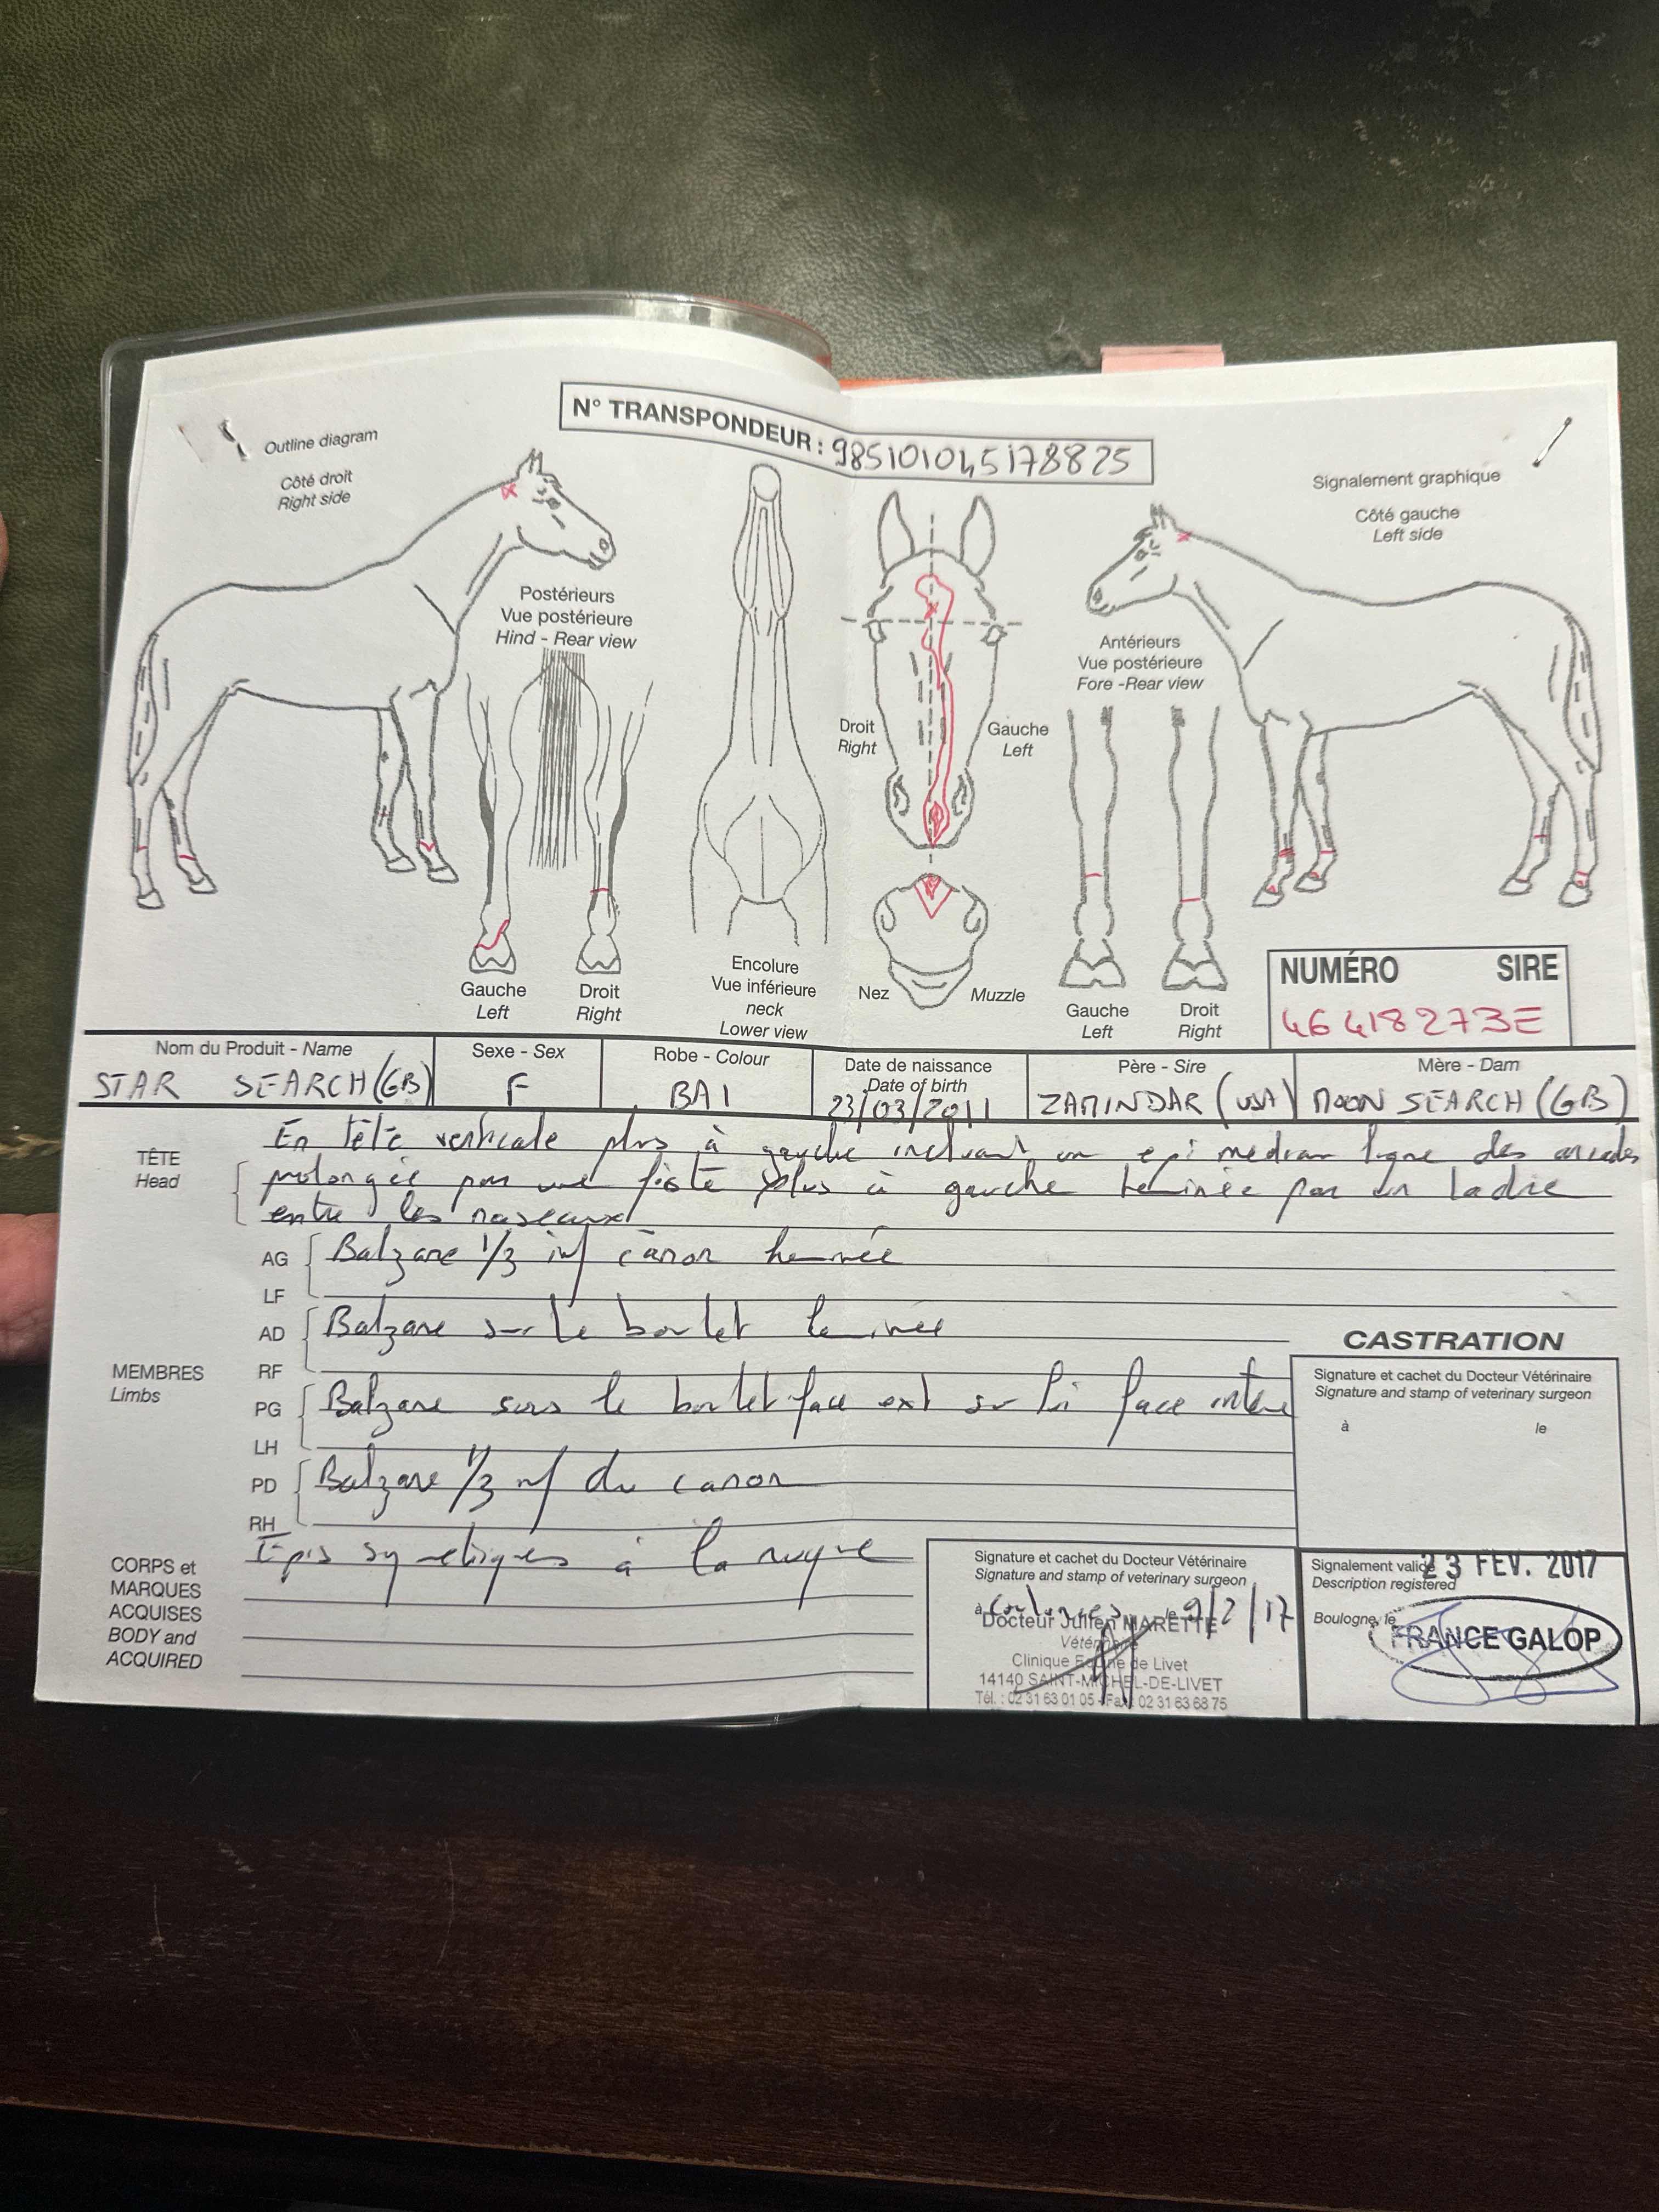 N° TRANSPONDEUR : 985101045178825
Outline diagram
Côté droit
Right side
Signalement graphique
Côté gauche
Left side
Postérieurs
Vue postérieure
Hind - Rear view
Antérieurs
Vue postérieure
Fore -Rear view
Droit
Right
Gauche
Left
Gauche
Left
Droit
Right
Encolure
Vue inférieure
neck
Lower view
Nez
Muzzle
Gauche
Left
Droit
Right
NUMÉRO SIRE
46418273E
Nom du Produit - Name
STAR SEARCH (GB)
Sexe - Sex
F
Robe - Colour
BAI
Date de naissance
Date of birth
23/03/2011
Père - Sire
ZAMINDAR (USA)
Mère - Dam
MOON SEARCH (GB)
TÊTE
Head
En tête verticale plus à gauche incluant un epi median ligne des arcades
prolongée par une liste plus à gauche terminée par un ladre
entre les naseaux
AG
LF
Balzane 1/3 inf canon herminée
AD
RF
Balzane sur le boulet herminée
MEMBRES
Limbs
PG
LH
Balzane sous le boulet face ext sur lui face interne
PD
RH
Balzane 1/3 inf du canon
CORPS et
MARQUES
ACQUISES
BODY and
ACQUIRED
Epis symetriques à la nuque
CASTRATION
Signature et cachet du Docteur Vétérinaire
Signature and stamp of veterinary surgeon
à le
Signature et cachet du Docteur Vétérinaire
Signature and stamp of veterinary surgeon
à le 9/2/17
Docteur Julien MARETTE
Vétérinaire
Clinique Equine de Livet
14140 SAINT-MICHEL-DE-LIVET
Tél. : 02 31 63 01 05 - Fax : 02 31 63 68 75
Signalement validé
Description registered
23 FEV. 2017
Boulogne, le
FRANCE GALOP